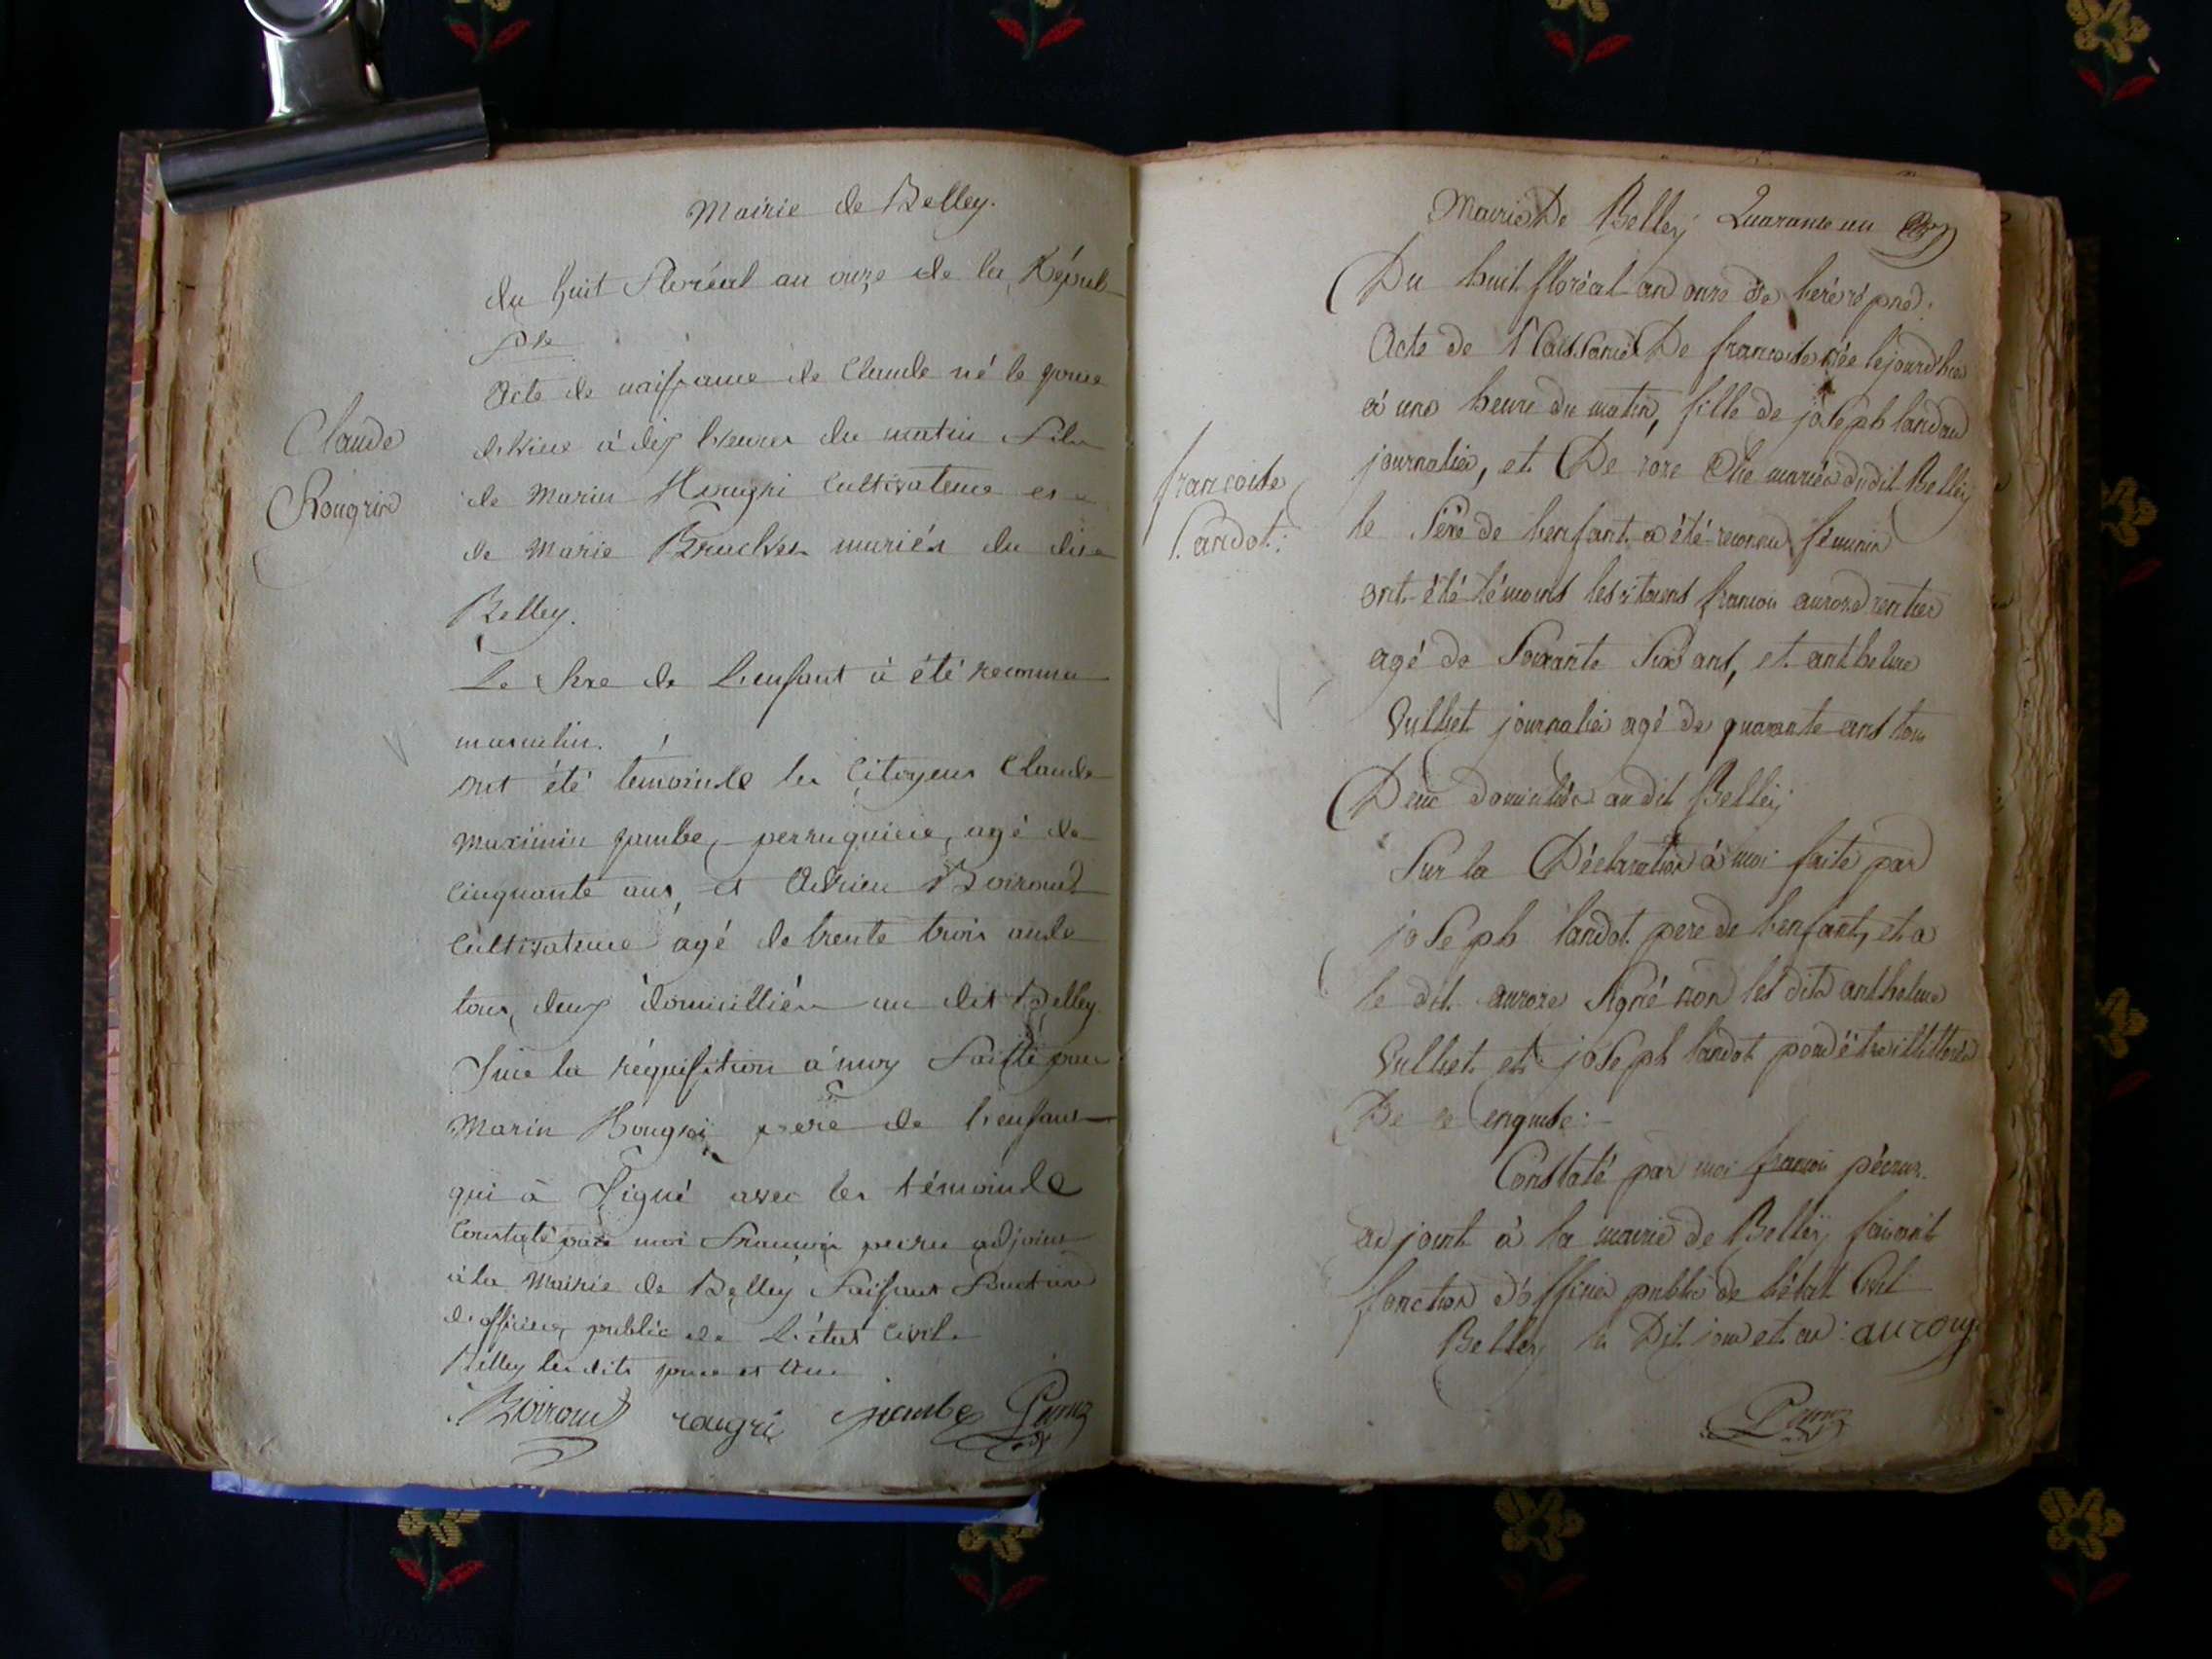 Mairie de Belley.
du huit floréal an onze de la Répub
Acte de naissance de Claude né le jour
à dix heures du matin fils
Claude
Rougrin
de Marin Rougri Cultivateur et
de Marie mariés du dit
Belley.
Le sexe de L'enfant à été reconnu
masculin.
ont été témoins les Citoyens Claude
Maximin jambe, perruquier, agé de
cinquante ans, et Adrien Boiroud
Cultivateur agé de trente trois ans
tous deux domicilliés au dit Belley
Sur la réquisition à moy faitte par
Marin Rougri pere de l'enfant
qui à Signé avec les témoins
Constaté par moi françois adjoint
à la Mairie de Belley faisant fonction
d'officier public de L'état Civil
Belley les dits jour et an
Boiroud rougri jambe
Mairie De Belley Quarante un
Du huit floréal an onze de l'ère
Acte de Naissance De francoise née
à une heure du matin, fille de joseph landau
journalier, et De roze mariés dudit Belley
francoise
landot:
le Sexe de l'enfant a été reconnu féminin
ont été témoins les citoiens francois aurore rentier
agé de Soixante Six ans, et anthelme
Vulliet journalier agé de quarante ans tous
Deux domiciliés au dit Belley
Sur la Déclaration à moi faite par
joseph landot pere de l'enfant, et a
le dit aurore Signé non les dits anthelme
Vulliet et joseph landot pour être illittérés
De ce enquis:
Constaté par moi francois
adjoint à la mairie de Belley faisant
fonction d'officier public de l'état Civil
Belley le Dit jour et an: